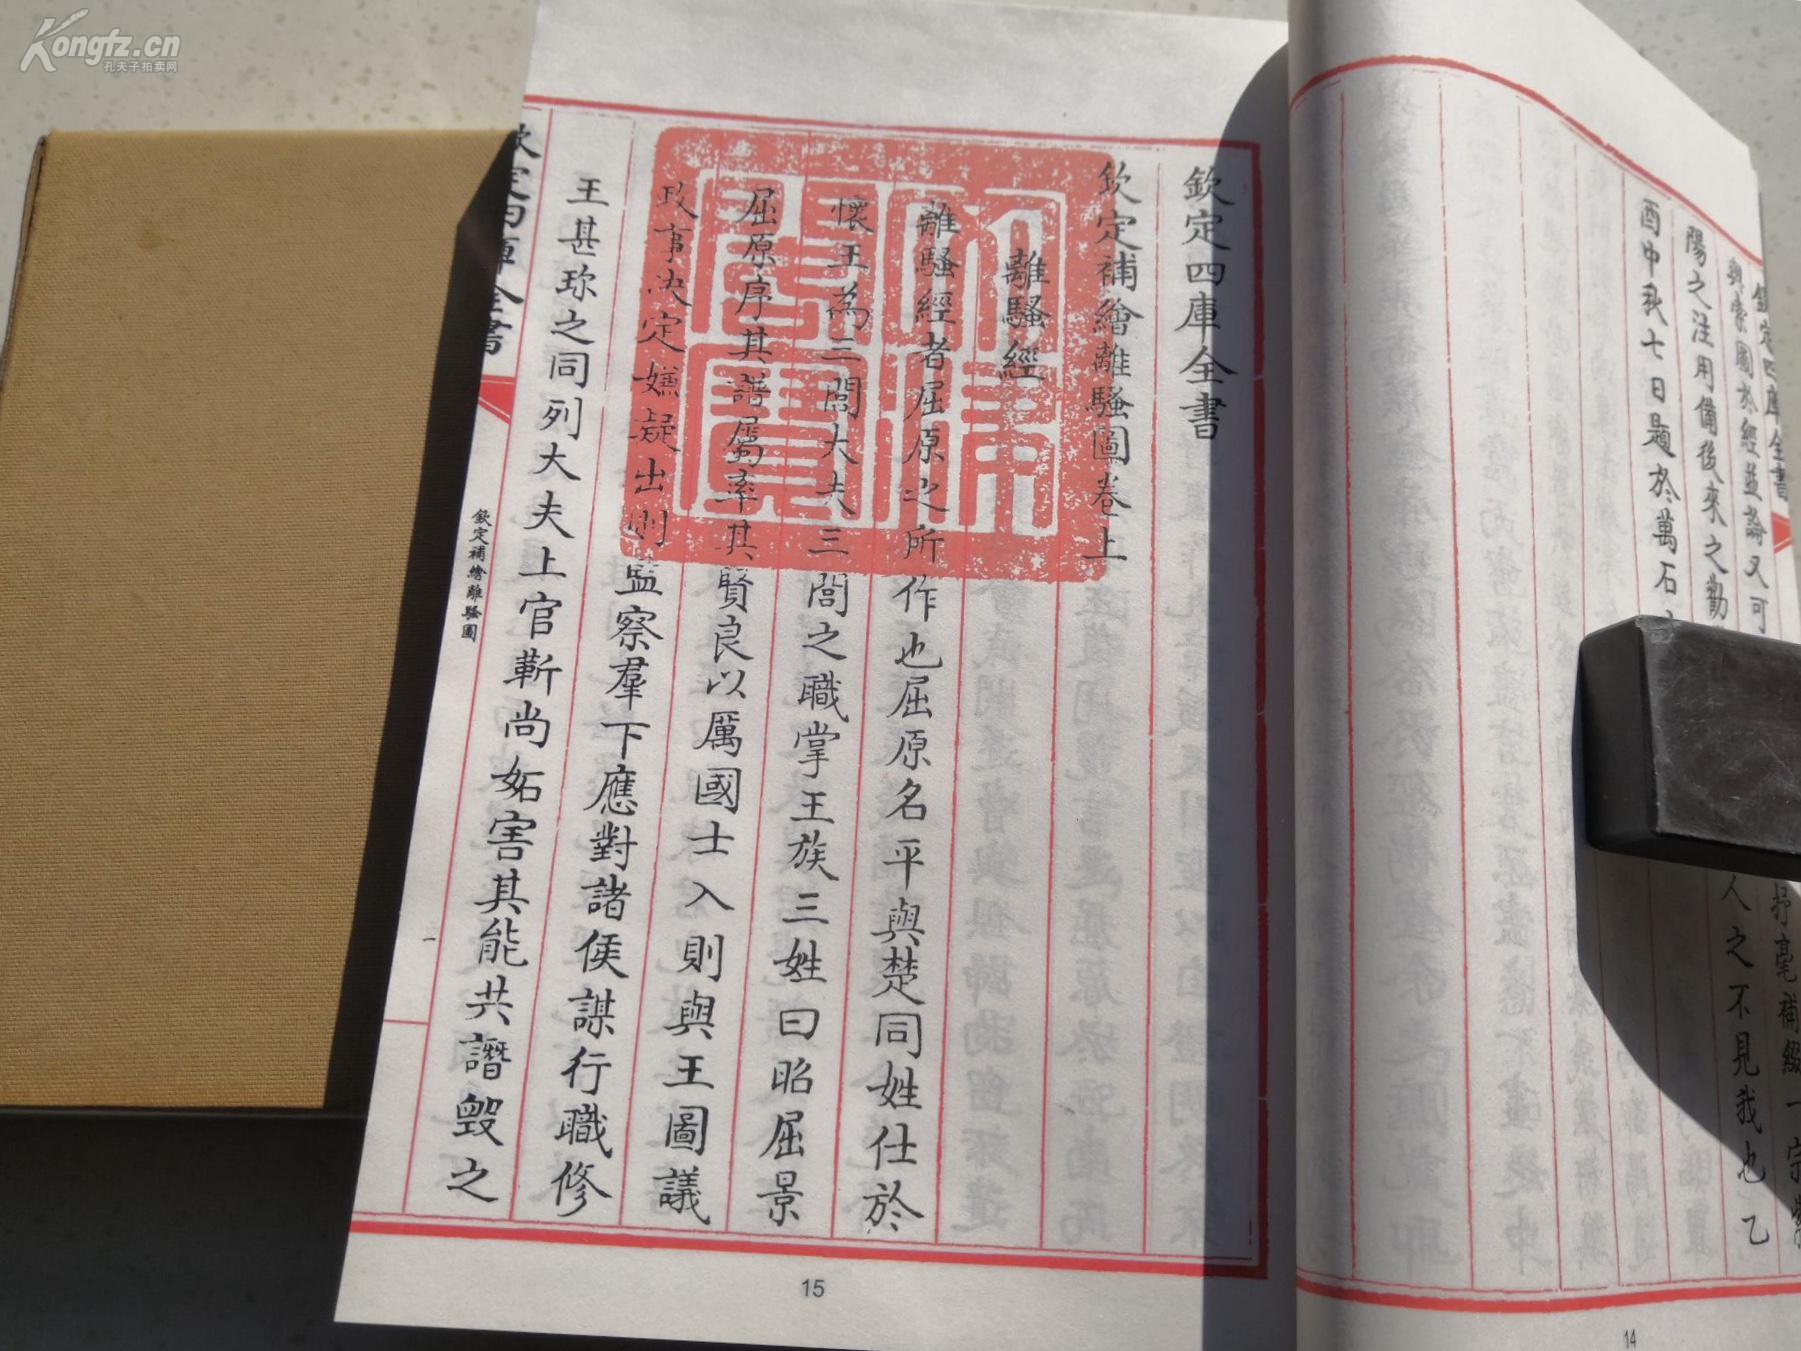 Kongfz.cn
孔夫子拍卖网
欽定四庫全書
欽定補繪離騷圖卷上
離騷經
離騷經者屈原之所作也屈原名平與楚同姓仕於
懷王為三閭大夫三閭之職掌王族三姓曰昭屈景
屈原序其譜屬率其賢良以厲國士入則與王圖議
政事決定嫌疑出則監察羣下應對諸侯謀行職修
王甚珍之同列大夫上官靳尚妬害其能共譖毀之
欽定四庫全書
欽定補繪離騷圖
一
15
欽定四庫全書
與索圖於經並論又可
陽之注用備後來之勸
酉中秋七日題於萬石
抒毫補綴一宗
人之不見我也乙
14